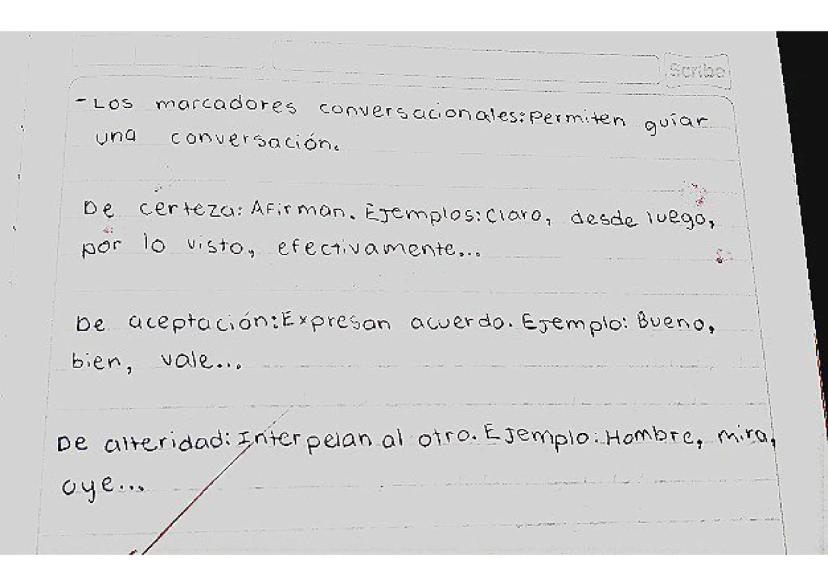 Scribe
-Los marcadores conversacionales: Permiten guiar
una conversación.
De certeza: Afirman. Ejemplos: Claro, desde luego,
por lo visto, efectivamente...
De aceptación: Expresan acuerdo. Ejemplo: Bueno,
bien, vale...
De alteridad: Interpelan al otro. Ejemplo: Hombre, mira,
oye...